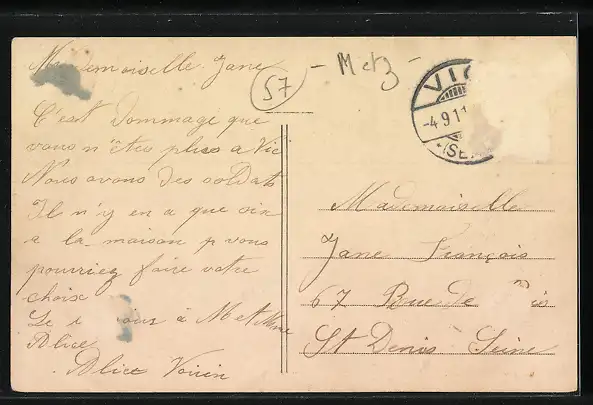 Mademoiselle Jane
C'est Dommage que
vous n'êtes plus a Vic
Nous avons des soldats
Il n'y en a que six
a la maison p vous
pourriez faire votre
choix
à M et Mme
Alice
Alice Voirin
57 - Metz -
VIC
-4.9.11
(SE
Mademoiselle
Jane François
67 Rue de
St Denis Seine